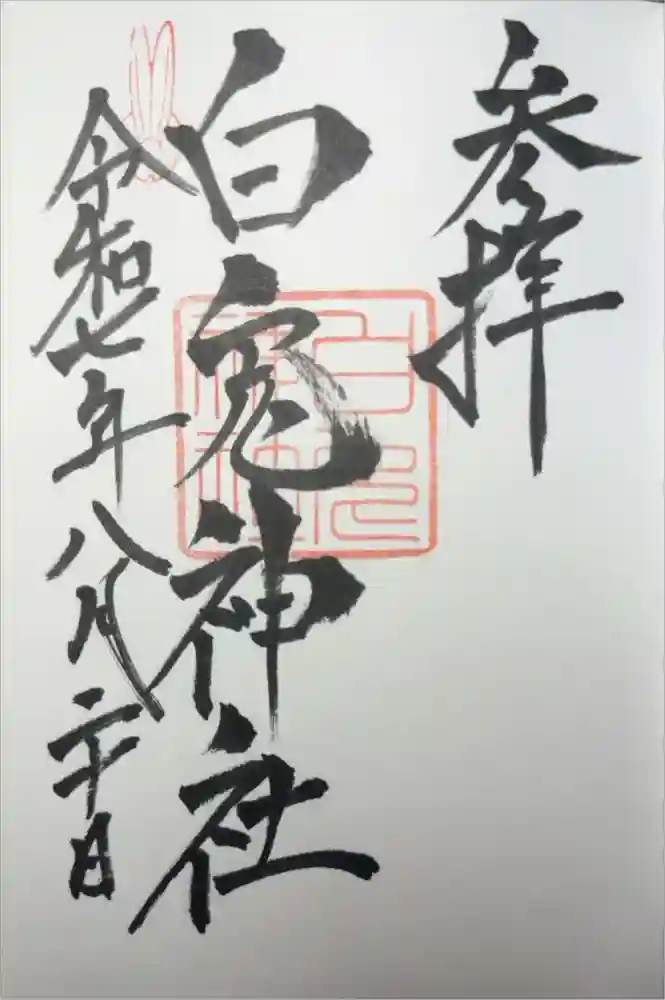 参拝
白兎神社
令和七年八月二十日
白兎
神社